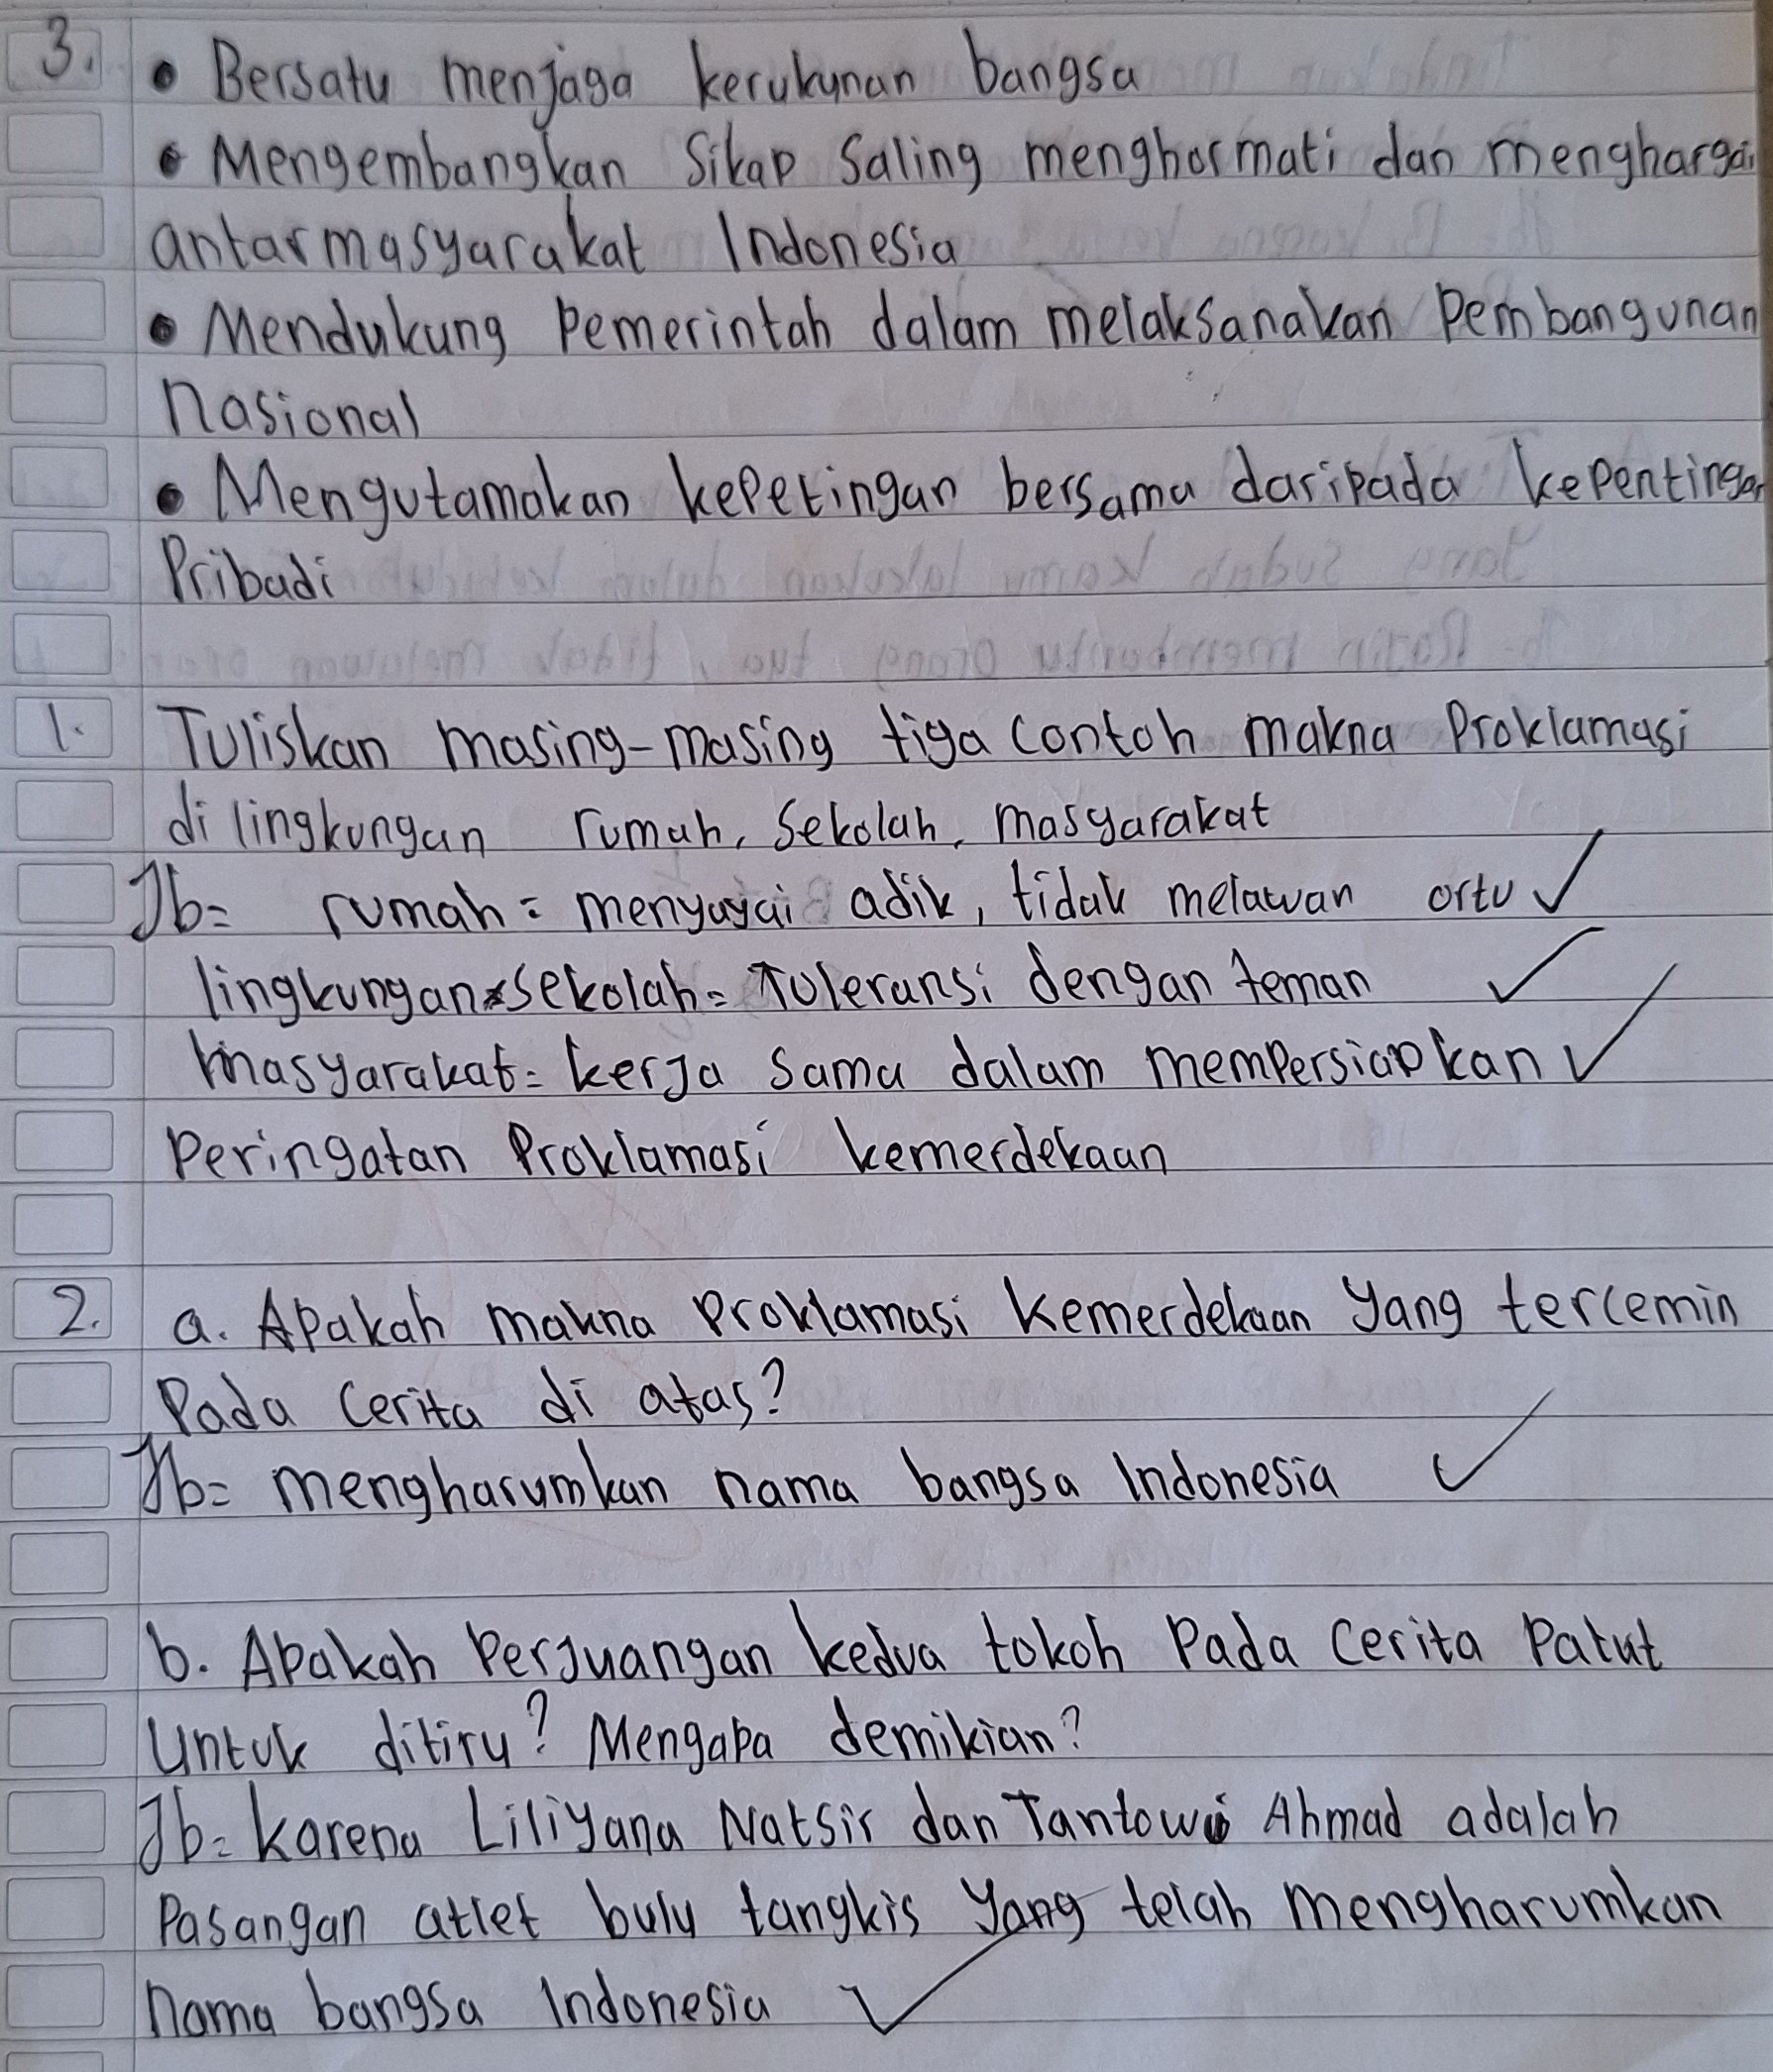 3. • Bersatu menjaga kerukunan bangsa
• Mengembangkan Sikap Saling menghormati dan menghargai
antarmasyarakat Indonesia
• Mendukung Pemerintah dalam melaksanakan Pembangunan
nasional
• Mengutamakan kepetingan bersama daripada kepentingan
Pribadi
1. Tuliskan masing-masing tiga contoh makna Proklamasi
di lingkungan rumah, Sekolah, masyarakat
Jb= rumah = menyayai adik, tidak melawan ortu ✓
lingkungan sekolah= Toleransi dengan teman ✓
masyarakat= kerja sama dalam mempersiapkan ✓
Peringatan Proklamasi kemerdekaan
2. a. Apakah makna Proklamasi Kemerdekaan Yang tercemin
Pada Cerita di atas?
Jb= mengharumkan nama bangsa Indonesia ✓
b. Apakah Perjuangan kedua tokoh Pada Cerita Patut
Untuk ditiru? Mengapa demikian?
Jb= karena Liliyana Natsir dan Tantowi Ahmad adalah
Pasangan atlet bulu tangkis Yang telah mengharumkan
nama bangsa Indonesia ✓